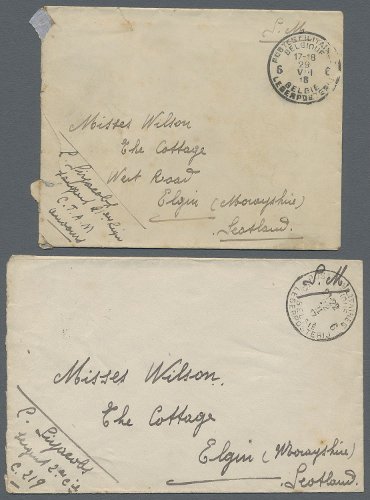 S.M.
POSTES MILITAIRES
BELGIQUE
17-18
29
VIII
18
6 6
BELGIE
LEGERPOSTERIJ
Misses Wilson
The Cottage
West Road
Elgin (Morayshire)
Scotland.
C.I.A.M.
S.M.
LEGERPOSTERIJ
Misses Wilson.
The Cottage
Elgin (Morayshire)
Scotland.
C. 219